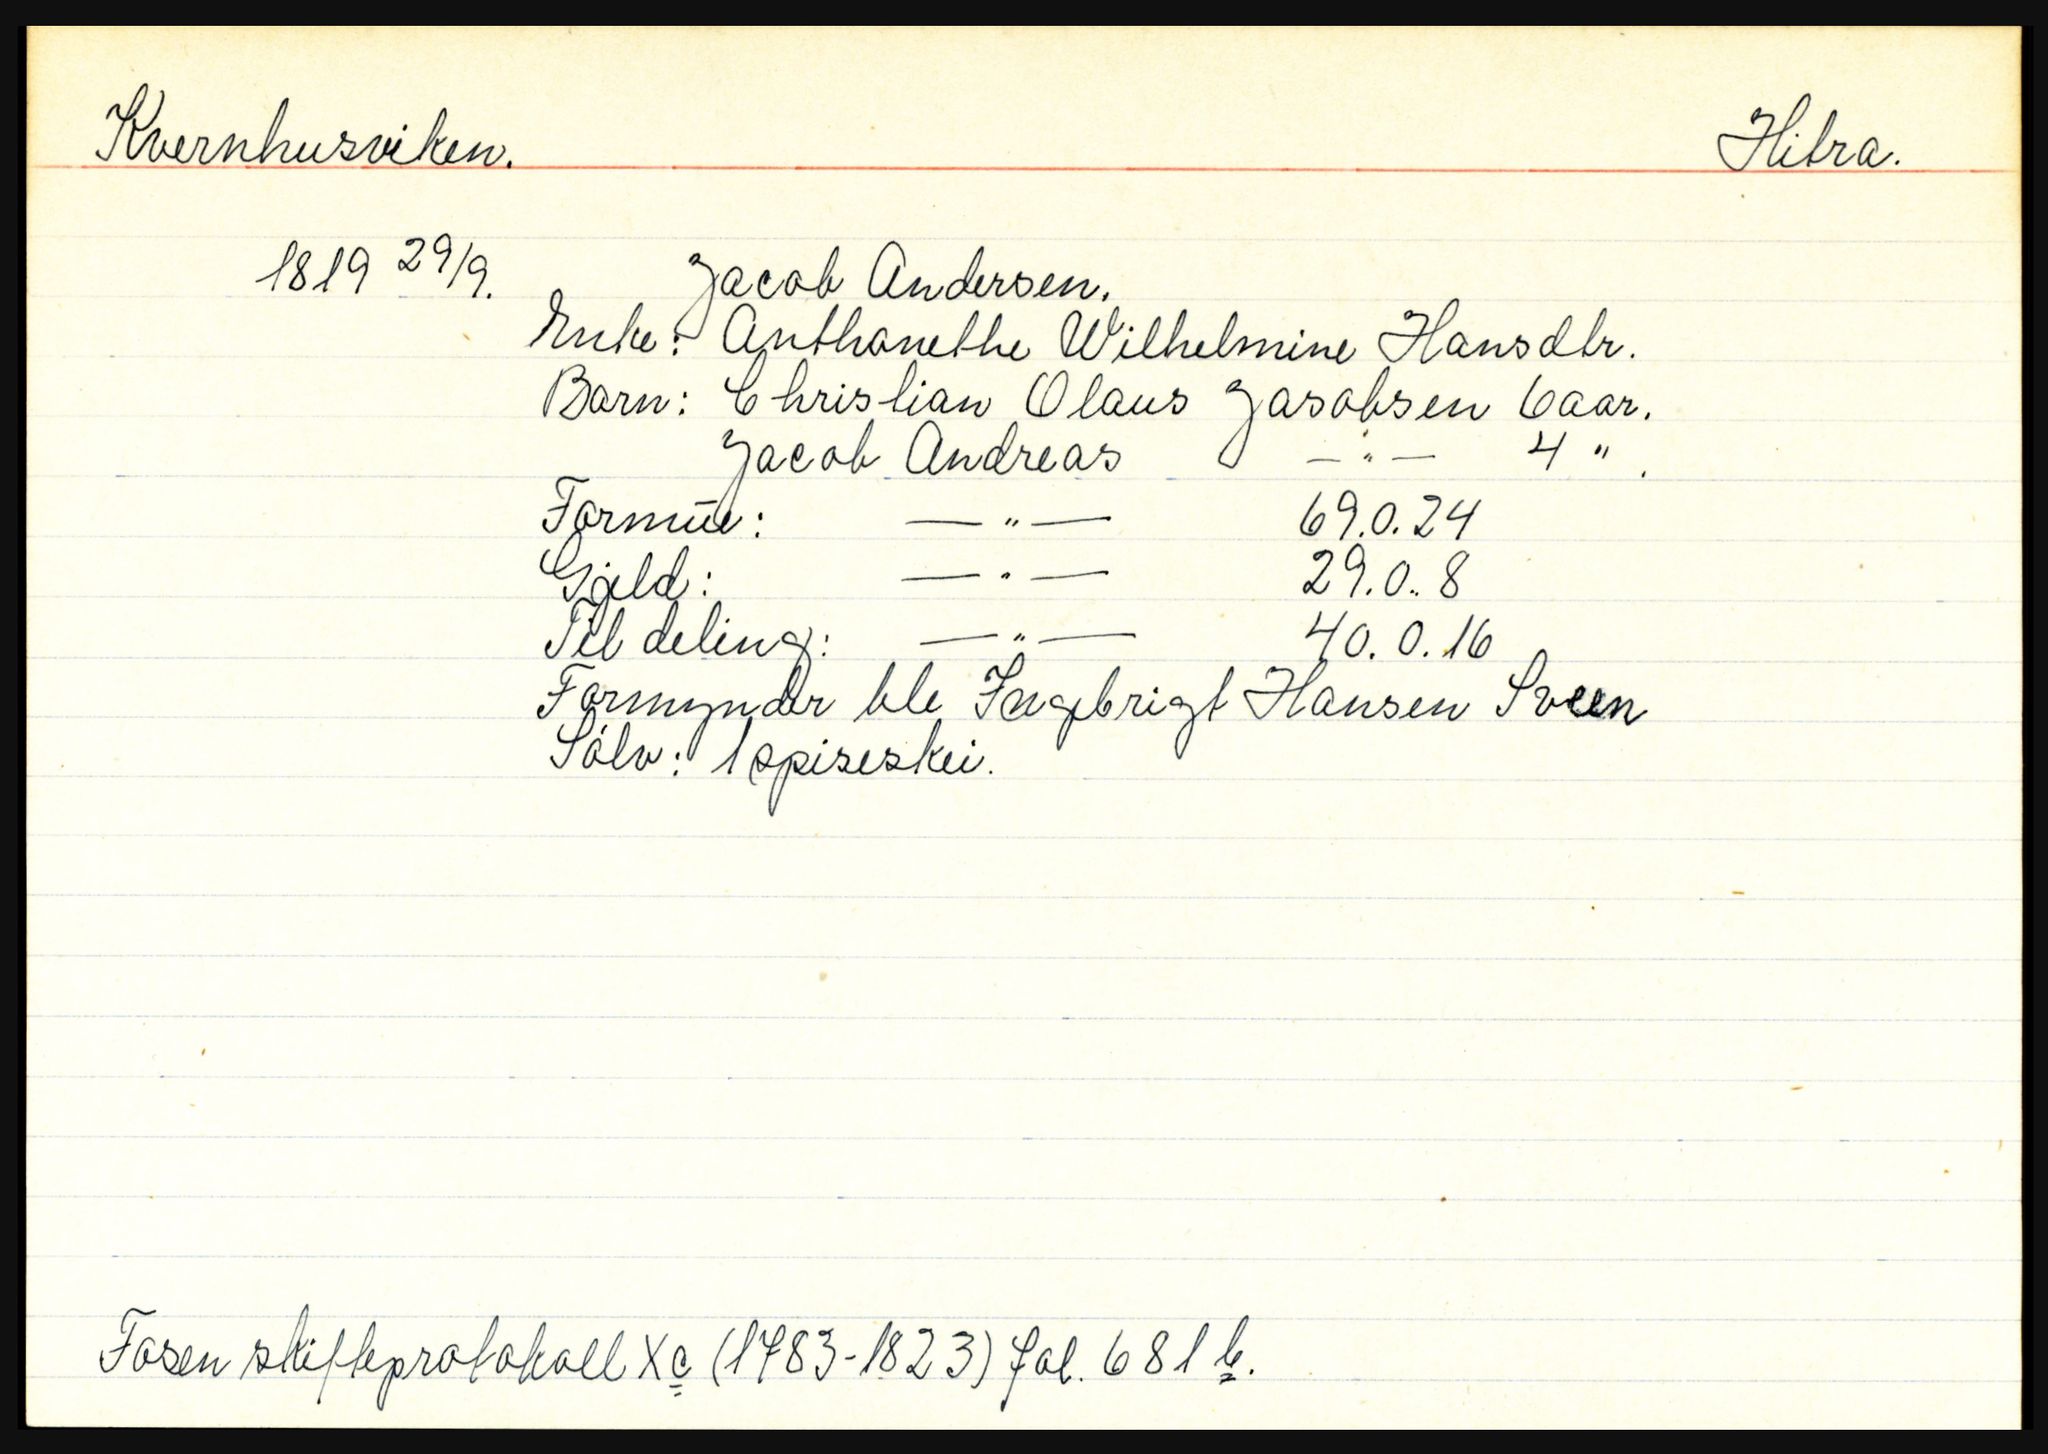 Kvernhusviken. Hitra.
1819 29/9. Jacob Andersen.
Enke: Anthonethe Wilhelmine Hansdtr.
Barn: Christian Olaus Jasobsen 6 aar.
Jacob Andreas —"— 4 ".
Formüe: —"— 69.0.24
Gjeld: —"— 29.0.8
Til deling: —"— 40.0.16
Formynder ble Ingebrigt Hansen Sveen
Sölv: 1 spiseskei.
Fosen skifteprotokoll Xc (1783-1823) fol. 681 b.